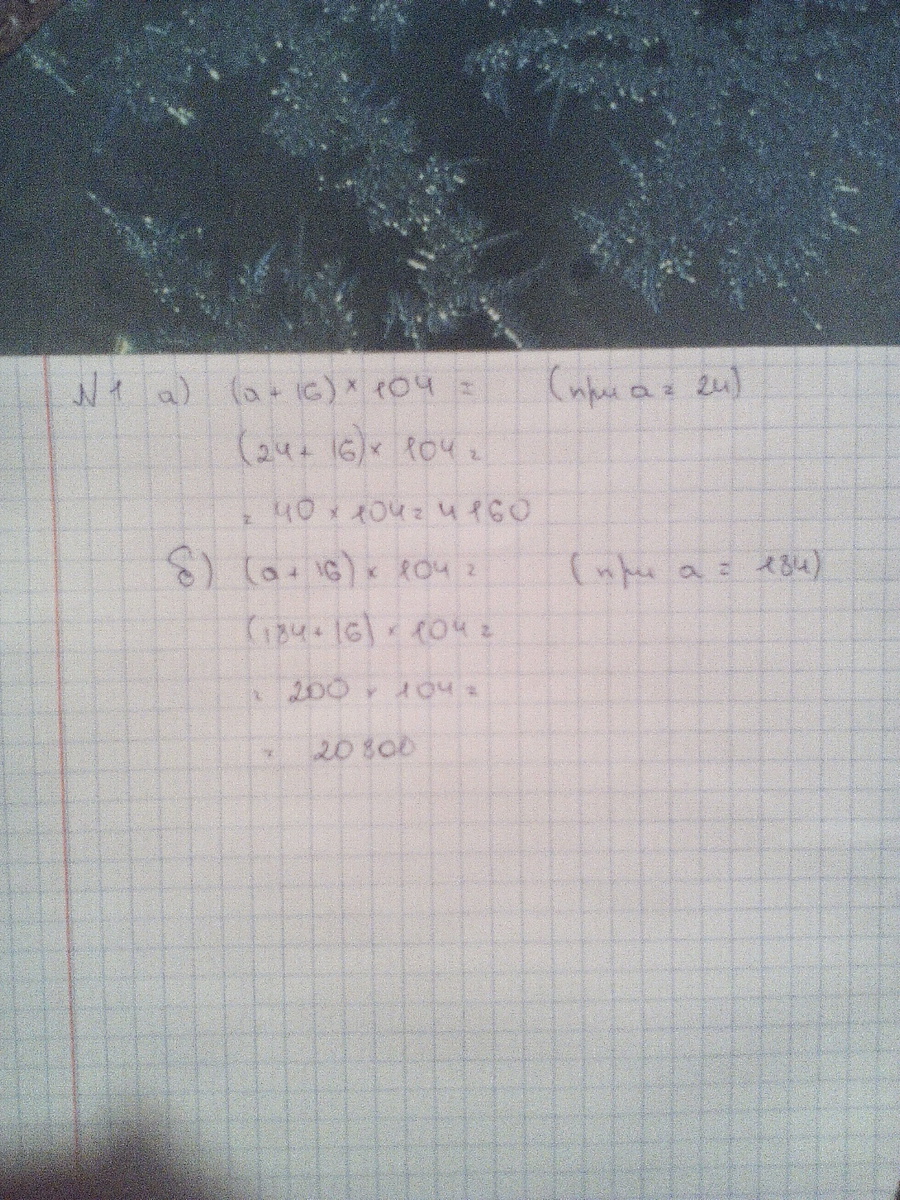 N1 а) (а+16)×104= (при а=24)
(24+16)×104=
= 40×104=4160
б) (а+16)×104= (при а=184)
(184+16)×104=
= 200×104=
= 20800